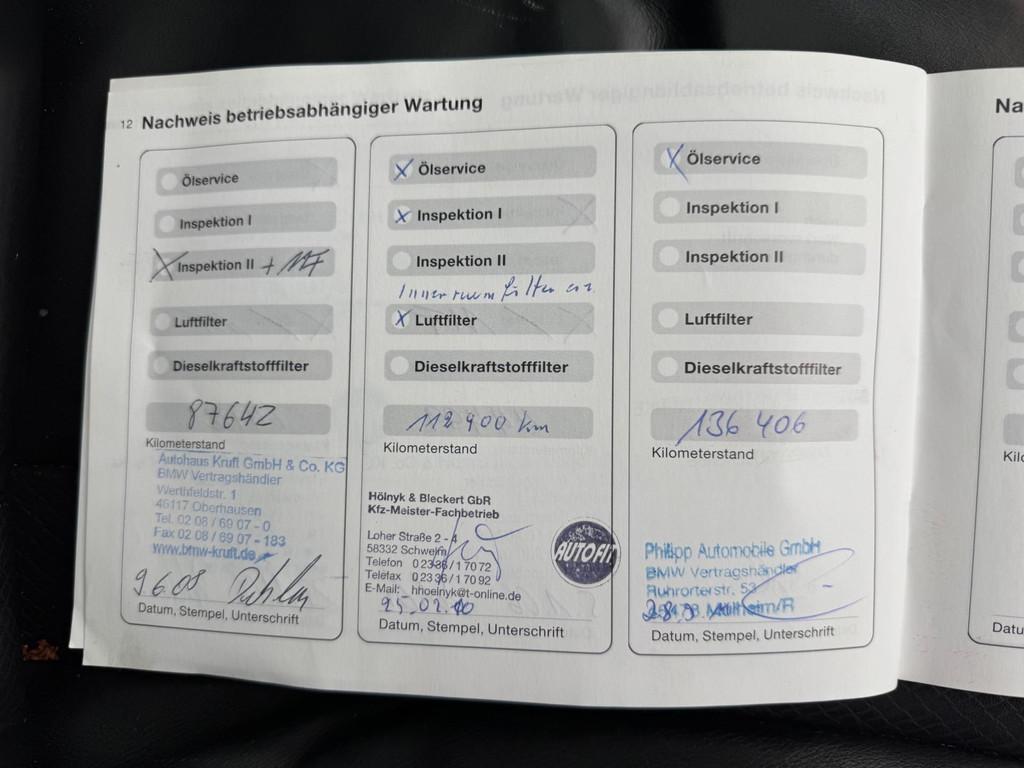 12 Nachweis betriebsabhängiger Wartung
Ölservice
Inspektion I
X Inspektion II +
Luftfilter
Dieselkraftstofffilter
87642
Kilometerstand
Autohaus Kruft GmbH & Co. KG
BMW Vertragshändler
Werthfeldstr. 1
46117 Oberhausen
Tel. 02 08 / 69 07 - 0
Fax 02 08 / 69 07 - 183
www.bmw-kruft.de
9.6.08
Datum, Stempel, Unterschrift
X Ölservice
X Inspektion I
Inspektion II
Innenraumfilter
X Luftfilter
Dieselkraftstofffilter
112 900 km
Kilometerstand
Hölnyk & Bleckert GbR
Kfz-Meister-Fachbetrieb
Loher Straße 2 - 4
58332 Schwelm
Telefon 0 23 36 / 1 70 72
Telefax 0 23 36 / 1 70 92
E-Mail: hhoelnyk@t-online.de
AUTOFIT
Datum, Stempel, Unterschrift
X Ölservice
Inspektion I
Inspektion II
Luftfilter
Dieselkraftstofffilter
136 406
Kilometerstand
Philipp Automobile GmbH
BMW Vertragshändler
Ruhrorterstr. 53
Mülheim/R
Datum, Stempel, Unterschrift
Na
Kil
Datu